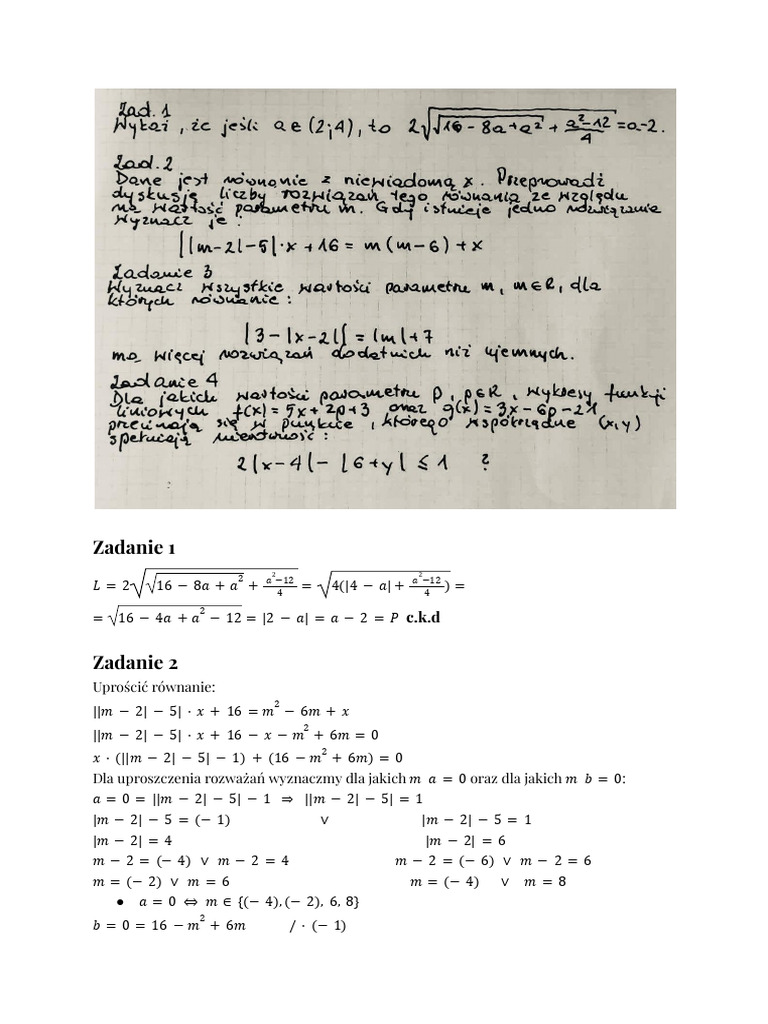 Zad. 1
Wykaż, że jeśli a ∈ (2;4), to 2√(√(16 - 8a + a²) + (a²-12)/4) = a-2.
Zad. 2
Dane jest równanie z niewiadomą x. Przeprowadź
dyskusję liczby rozwiązań tego równania ze względu
na wartość parametru m. Gdy istnieje jedno rozwiązanie
wyznacz je:
||m-2|-5|·x + 16 = m(m-6) + x
Zadanie 3
Wyznacz wszystkie wartości parametru m, m∈R, dla
których równanie:
|3-|x-2|| = |m|+7
ma więcej rozwiązań dodatnich niż ujemnych.
Zadanie 4
Dla jakich wartości parametru p, p∈R, wykresy funkcji
liniowych f(x) = 5x + 2p+3 oraz g(x) = 3x - 6p - 21
przecinają się w punkcie, którego współrzędne (x,y)
spełniają nierówność:
2|x-4| - |6+y| ≤ 1 ?
Zadanie 1
L = 2√(√(16 − 8a + a²) + (a²−12)/4) = √(4(|4 − a| + (a²−12)/4)) =
= √(16 − 4a + a² − 12) = |2 − a| = a − 2 = P c.k.d
Zadanie 2
Uprościć równanie:
||m − 2| − 5| · x + 16 = m² − 6m + x
||m − 2| − 5| · x + 16 − x − m² + 6m = 0
x · (||m − 2| − 5| − 1) + (16 − m² + 6m) = 0
Dla uproszczenia rozważań wyznaczmy dla jakich m a = 0 oraz dla jakich m b = 0:
a = 0 = ||m − 2| − 5| − 1 ⇒ ||m − 2| − 5| = 1
|m − 2| − 5 = (− 1) ∨ |m − 2| − 5 = 1
|m − 2| = 4 |m − 2| = 6
m − 2 = (− 4) ∨ m − 2 = 4 m − 2 = (− 6) ∨ m − 2 = 6
m = (− 2) ∨ m = 6 m = (− 4) ∨ m = 8
● a = 0 ⇔ m ∈ {(− 4), (− 2), 6, 8}
b = 0 = 16 − m² + 6m / · (− 1)